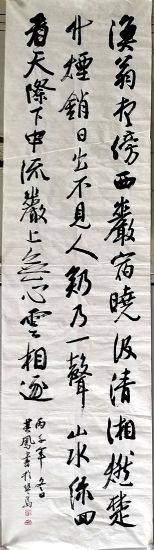 渔翁夜傍西巖宿曉汲清湘燃楚
竹煙銷日出不見人欸乃一聲山水绿回
看天際下中流巖上無心雲相逐
丙子年冬
書於